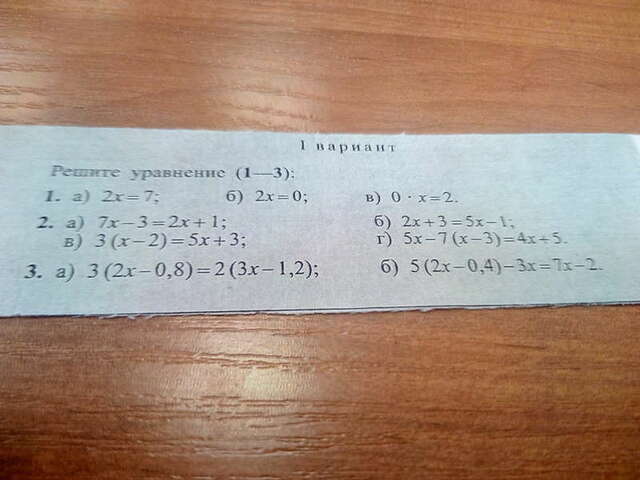 1 вариант
Решите уравнение (1—3):
1. а) 2x=7; б) 2x=0; в) 0 · x=2.
2. а) 7x−3=2x+1; б) 2x+3=5x−1;
в) 3(x−2)=5x+3; г) 5x−7(x−3)=4x+5.
3. а) 3(2x−0,8)=2(3x−1,2); б) 5(2x−0,4)−3x=7x−2.